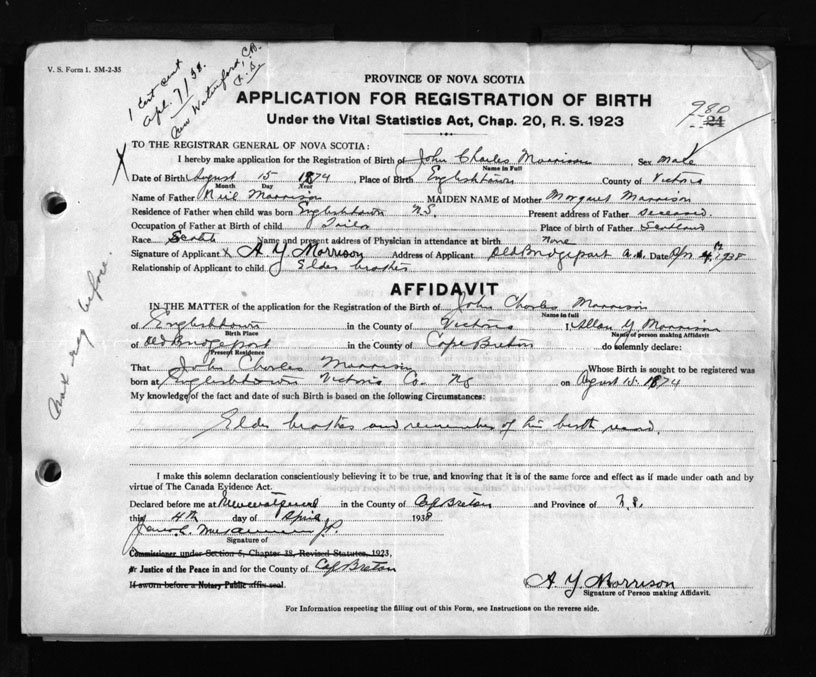 V. S. Form 1. 5M-2-35
1 Cert sent
Apl. 7/38.
New Waterford, C.B.
PROVINCE OF NOVA SCOTIA
APPLICATION FOR REGISTRATION OF BIRTH
Under the Vital Statistics Act, Chap. 20, R. S. 1923
980
24
TO THE REGISTRAR GENERAL OF NOVA SCOTIA:
X
I hereby make application for the Registration of Birth of John Charles Morrison Sex Male
Name in Full
Date of Birth August 15 1874, Place of Birth Englishtown County of Victoria
Month Day Year
Name of Father Neil Morrison MAIDEN NAME of Mother Morgaret Morrison
Residence of Father when child was born Englishtown N.S. Present address of Father deceased.
Occupation of Father at Birth of child Tailor Place of birth of Father Scotland
Race Scotch Name and present address of Physician in attendance at birth None
Signature of Applicant X A. Y. Morrison Address of Applicant Old Bridgeport Date Apr 4th 1938
Relationship of Applicant to child Elder brother
AFFIDAVIT
IN THE MATTER of the application for the Registration of the Birth of John Charles Morrison
Name in full
of Englishtown in the County of Victoria I, Allan Y. Morrison
Birth Place Name of person making Affidavit
of Old Bridgeport in the County of Cape Breton do solemnly declare:
Present Residence
That John Charles Morrison Whose Birth is sought to be registered was
born at Englishtown Victoria Co. NS on August 15. 1874
My knowledge of the fact and date of such Birth is based on the following Circumstances:
Elder brother and remember of his birth
not reg before.
I make this solemn declaration conscientiously believing it to be true, and knowing that it is of the same force and effect as if made under oath and by
virtue of The Canada Evidence Act.
Declared before me at New Waterford in the County of Cap Breton and Province of N. S.
this 4th day of April 1938
J.P.
Signature of
Commissioner under Section 5, Chapter 38, Revised Statutes, 1923,
or Justice of the Peace in and for the County of Cap Breton
If sworn before a Notary Public affix seal.
A. Y. Morrison
Signature of Person making Affidavit.
For Information respecting the filling out of this Form, see Instructions on the reverse side.